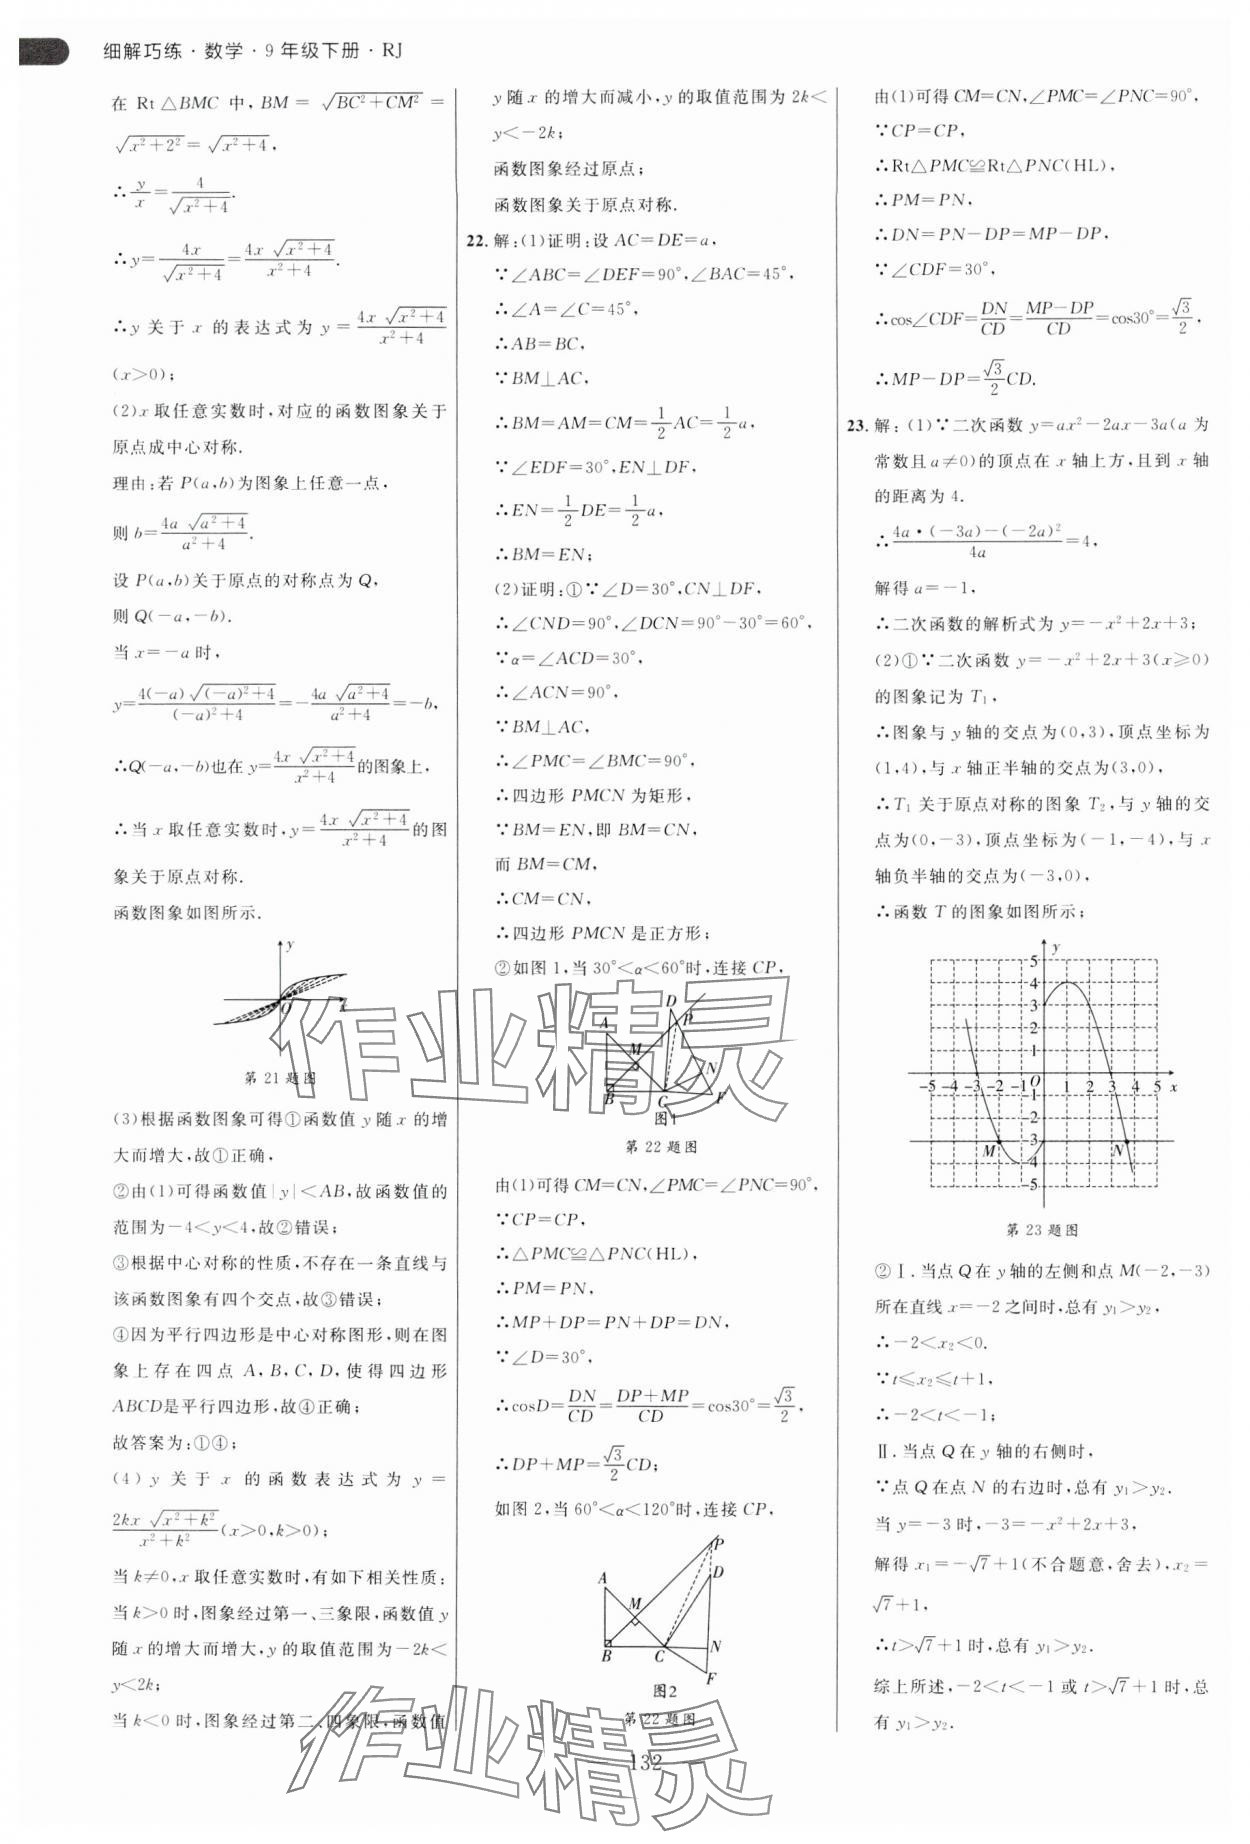 细解巧练·数学·9年级下册·RJ
在 Rt△BMC 中,BM=√(BC²+CM²)=
√(x²+2²)=√(x²+4),
∴y/x=4/√(x²+4).
∴y=4x/√(x²+4)=4x√(x²+4)/(x²+4).
∴y 关于 x 的表达式为 y=4x√(x²+4)/(x²+4)
(x>0);
(2)x 取任意实数时,对应的函数图象关于
原点成中心对称.
理由:若 P(a,b)为图象上任意一点,
则 b=4a√(a²+4)/(a²+4).
设 P(a,b)关于原点的对称点为 Q,
则 Q(-a,-b).
当 x=-a 时,
y=4(-a)√((-a)²+4)/((-a)²+4)=-4a√(a²+4)/(a²+4)=-b,
∴Q(-a,-b)也在 y=4x√(x²+4)/(x²+4)的图象上,
∴当 x 取任意实数时,y=4x√(x²+4)/(x²+4)的图
象关于原点对称.
函数图象如图所示.
y
O
x
第 21 题图
(3)根据函数图象可得①函数值 y 随 x 的增
大而增大,故①正确,
②由(1)可得函数值|y|<AB,故函数值的
范围为-4<y<4,故②错误;
③根据中心对称的性质,不存在一条直线与
该函数图象有四个交点,故③错误;
④因为平行四边形是中心对称图形,则在图
象上存在四点 A,B,C,D,使得四边形
ABCD是平行四边形,故④正确;
故答案为:①④;
(4)y 关于 x 的函数表达式为 y=
2kx√(x²+k²)/(x²+k²)(x>0,k>0);
当 k≠0,x 取任意实数时,有如下相关性质:
当 k>0 时,图象经过第一、三象限,函数值 y
随 x 的增大而增大,y 的取值范围为-2k<
y<2k;
当 k<0 时,图象经过第二、四象限,函数值
y 随 x 的增大而减小,y 的取值范围为 2k<
y<-2k;
函数图象经过原点;
函数图象关于原点对称.
22.解:(1)证明:设 AC=DE=a,
∵∠ABC=∠DEF=90°,∠BAC=45°,
∴∠A=∠C=45°,
∴AB=BC,
∵BM⊥AC,
∴BM=AM=CM=1/2AC=1/2a,
∵∠EDF=30°,EN⊥DF,
∴EN=1/2DE=1/2a,
∴BM=EN;
(2)证明:①∵∠D=30°,CN⊥DF,
∴∠CND=90°,∠DCN=90°-30°=60°,
∵α=∠ACD=30°,
∴∠ACN=90°,
∵BM⊥AC,
∴∠PMC=∠BMC=90°,
∴四边形 PMCN 为矩形,
∵BM=EN,即 BM=CN,
而 BM=CM,
∴CM=CN,
∴四边形 PMCN 是正方形;
②如图 1,当 30°<α<60°时,连接 CP,
A D P M N B C F
图1
第 22 题图
由(1)可得 CM=CN,∠PMC=∠PNC=90°,
∵CP=CP,
∴△PMC≌△PNC(HL),
∴PM=PN,
∴MP+DP=PN+DP=DN,
∵∠D=30°,
∴cosD=DN/CD=(DP+MP)/CD=cos30°=√3/2,
∴DP+MP=√3/2CD;
如图 2,当 60°<α<120°时,连接 CP,
P D A M B C N F
图2
第 22 题图
由(1)可得 CM=CN,∠PMC=∠PNC=90°,
∵CP=CP,
∴Rt△PMC≌Rt△PNC(HL),
∴PM=PN,
∴DN=PN-DP=MP-DP,
∵∠CDF=30°,
∴cos∠CDF=DN/CD=(MP-DP)/CD=cos30°=√3/2,
∴MP-DP=√3/2CD.
23.解:(1)∵二次函数 y=ax²-2ax-3a(a 为
常数且 a≠0)的顶点在 x 轴上方,且到 x 轴
的距离为 4.
∴(4a·(-3a)-(-2a)²)/4a=4,
解得 a=-1,
∴二次函数的解析式为 y=-x²+2x+3;
(2)①∵二次函数 y=-x²+2x+3(x≥0)
的图象记为 T₁,
∴图象与 y 轴的交点为(0,3),顶点坐标为
(1,4),与 x 轴正半轴的交点为(3,0),
∴T₁ 关于原点对称的图象 T₂,与 y 轴的交
点为(0,-3),顶点坐标为(-1,-4),与 x
轴负半轴的交点为(-3,0),
∴函数 T 的图象如图所示;
y
5
4
3
2
1
-5 -4 -3 -2 -1 O 1 2 3 4 5 x
-1
-2
-3
-4
-5
M N
第 23 题图
②Ⅰ.当点 Q 在 y 轴的左侧和点 M(-2,-3)
所在直线 x=-2 之间时,总有 y₁>y₂,
∴-2<x₂<0.
∵t≤x₂≤t+1,
∴-2<t<-1;
Ⅱ.当点 Q 在 y 轴的右侧时,
∵点 Q 在点 N 的右边时,总有 y₁>y₂,
当 y=-3 时,-3=-x²+2x+3,
解得 x₁=-√7+1(不合题意,舍去),x₂=
√7+1,
∴t>√7+1 时,总有 y₁>y₂.
综上所述,-2<t<-1 或 t>√7+1 时,总
有 y₁>y₂.
132
作业精灵
作业精灵